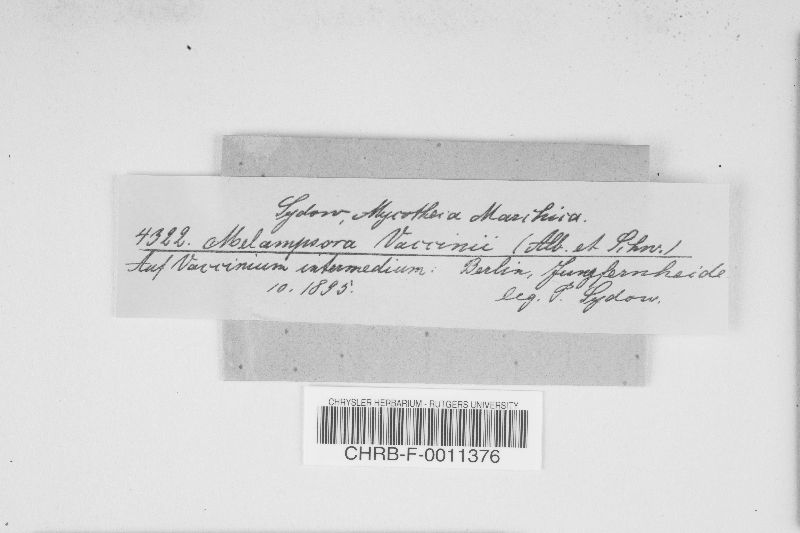 Sydow, Mycotheca Marchica.
4322. Melampsora Vaccinii (Alb. et Schw.)
Auf Vaccinium intermedium: Berlin, Jungfernheide
10. 1895. leg. P. Sydow.
CHRYSLER HERBARIUM - RUTGERS UNIVERSITY
CHRB-F-0011376